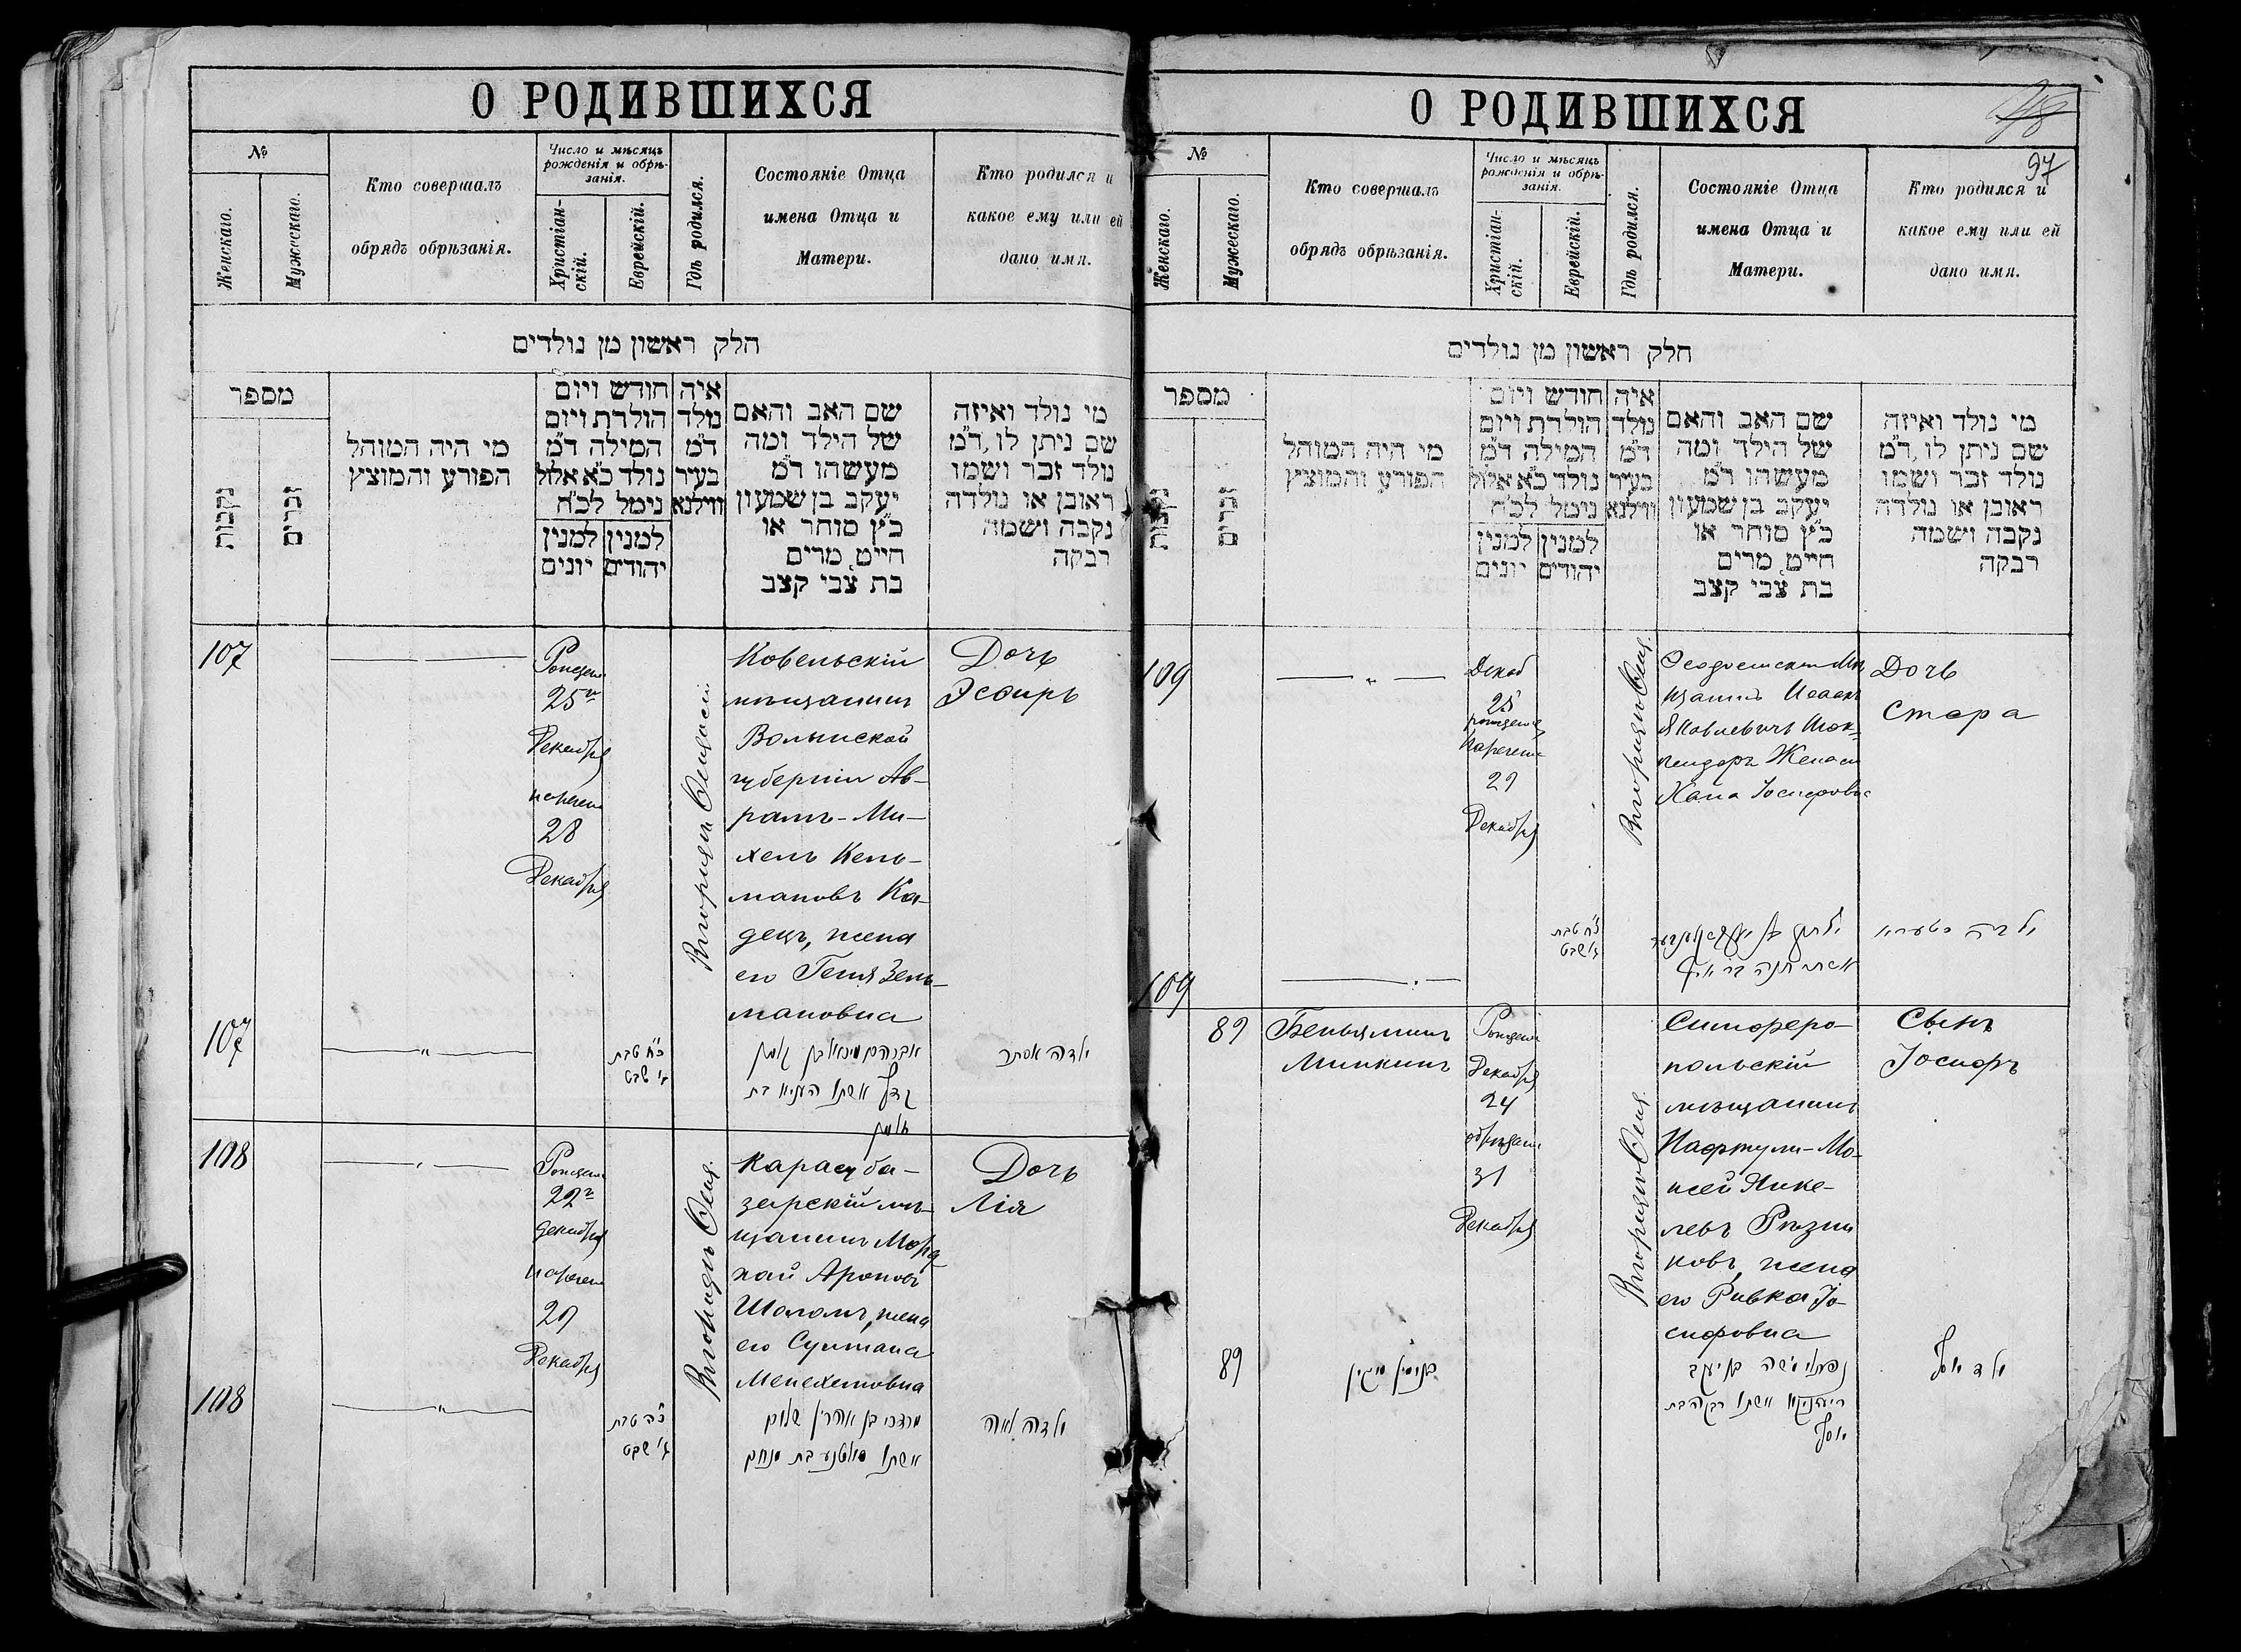 О РОДИВШИХСЯ
№
Женскаго.
Мужескаго.
Кто совершалъ
обрядъ обрѣзанія.
Число и мѣсяцъ
рожденія и обрѣ-
занія.
Христіан-
скій.
Еврейскій.
Гдѣ родился.
Состояніе Отца
имена Отца и
Матери.
Кто родился и
какое ему или ей
дано имя.
חלק ראשון מן נולדים
מספר
נקבות
זכרים
מי היה המוהל
הפורע והמוצץ
חודש ויום
הולדת ויום
המילה ד״מ
נולד כ״א אלול
נימל לכ״ח
למנין
יהודים
למנין
יונים
איה
נולד
ד״מ
בעיר
ווילנא
שם האב והאם
של הילד ומה
מעשהו ד״מ
יעקב בן שמעון
כ״ץ סוחר או
חייט, מרים
בת צבי קצב
מי נולד ואיזה
שם ניתן לו, ד״מ
נולד זכר ושמו
ראובן או נולדה
נקבה ושמה
רבקה
107
25
Декабря
28
Декабря
Ковельскій
мѣщанинъ
Волынской
губерніи Ав-
рамъ-Ми-
хель Кель-
мановъ Ка-
децъ, жена
его Геня Зель-
мановна
Дочь
Эсѳирь
107
כ״ח טבת
ג׳ שבט
ילדה אסתר
108
декабря
29
Декабря
Карасуба-
зарскій мѣ-
щанинъ Морд
хай Ароновъ
Шоломъ, жена
его Султана
Менехемовна
Дочь
Лія
108
כ״ה טבת
ג׳ שבט
מרדכי בן אהרן שלום
אשתו סולטנע בת מנחם
ילדה לאה
О РОДИВШИХСЯ
97
№
Женскаго.
Мужескаго.
Кто совершалъ
обрядъ обрѣзанія.
Число и мѣсяцъ
рожденія и обрѣ-
занія.
Христіан-
скій.
Еврейскій.
Гдѣ родился.
Состояніе Отца
имена Отца и
Матери.
Кто родился и
какое ему или ей
дано имя.
חלק ראשון מן נולדים
מספר
נקבות
זכרים
מי היה המוהל
הפורע והמוצץ
חודש ויום
הולדת ויום
המילה ד״מ
נולד כ״א אלול
נימל לכ״ח
למנין
יהודים
למנין
יונים
איה
נולד
ד״מ
בעיר
ווילנא
שם האב והאם
של הילד ומה
מעשהו ד״מ
יעקב בן שמעון
כ״ץ סוחר או
חייט, מרים
בת צבי קצב
מי נולד ואיזה
שם ניתן לו, ד״מ
נולד זכר ושמו
ראובן או נולדה
נקבה ושמה
רבקה
109
Декаб
25
29
Декабря
щанинъ Исаакъ
Яковлевичъ
Жена его
Хана Іосифовна
Дочь
Стера
ג׳ שבט
109
89
Беньяминъ
Минкинъ
Декабря
24
31
Декабря
Симферо-
польскій
мѣщанинъ
Нафтули-Мо-
исей Янке-
левъ Рѣзни
ковъ, жена
его Ривка Іо-
сифовна
Сынъ
Іосифъ
89
בנימין מינקין
נפתלי משה בן יעקב
אשתו רבקה בת
יוסף
ילד יוסף